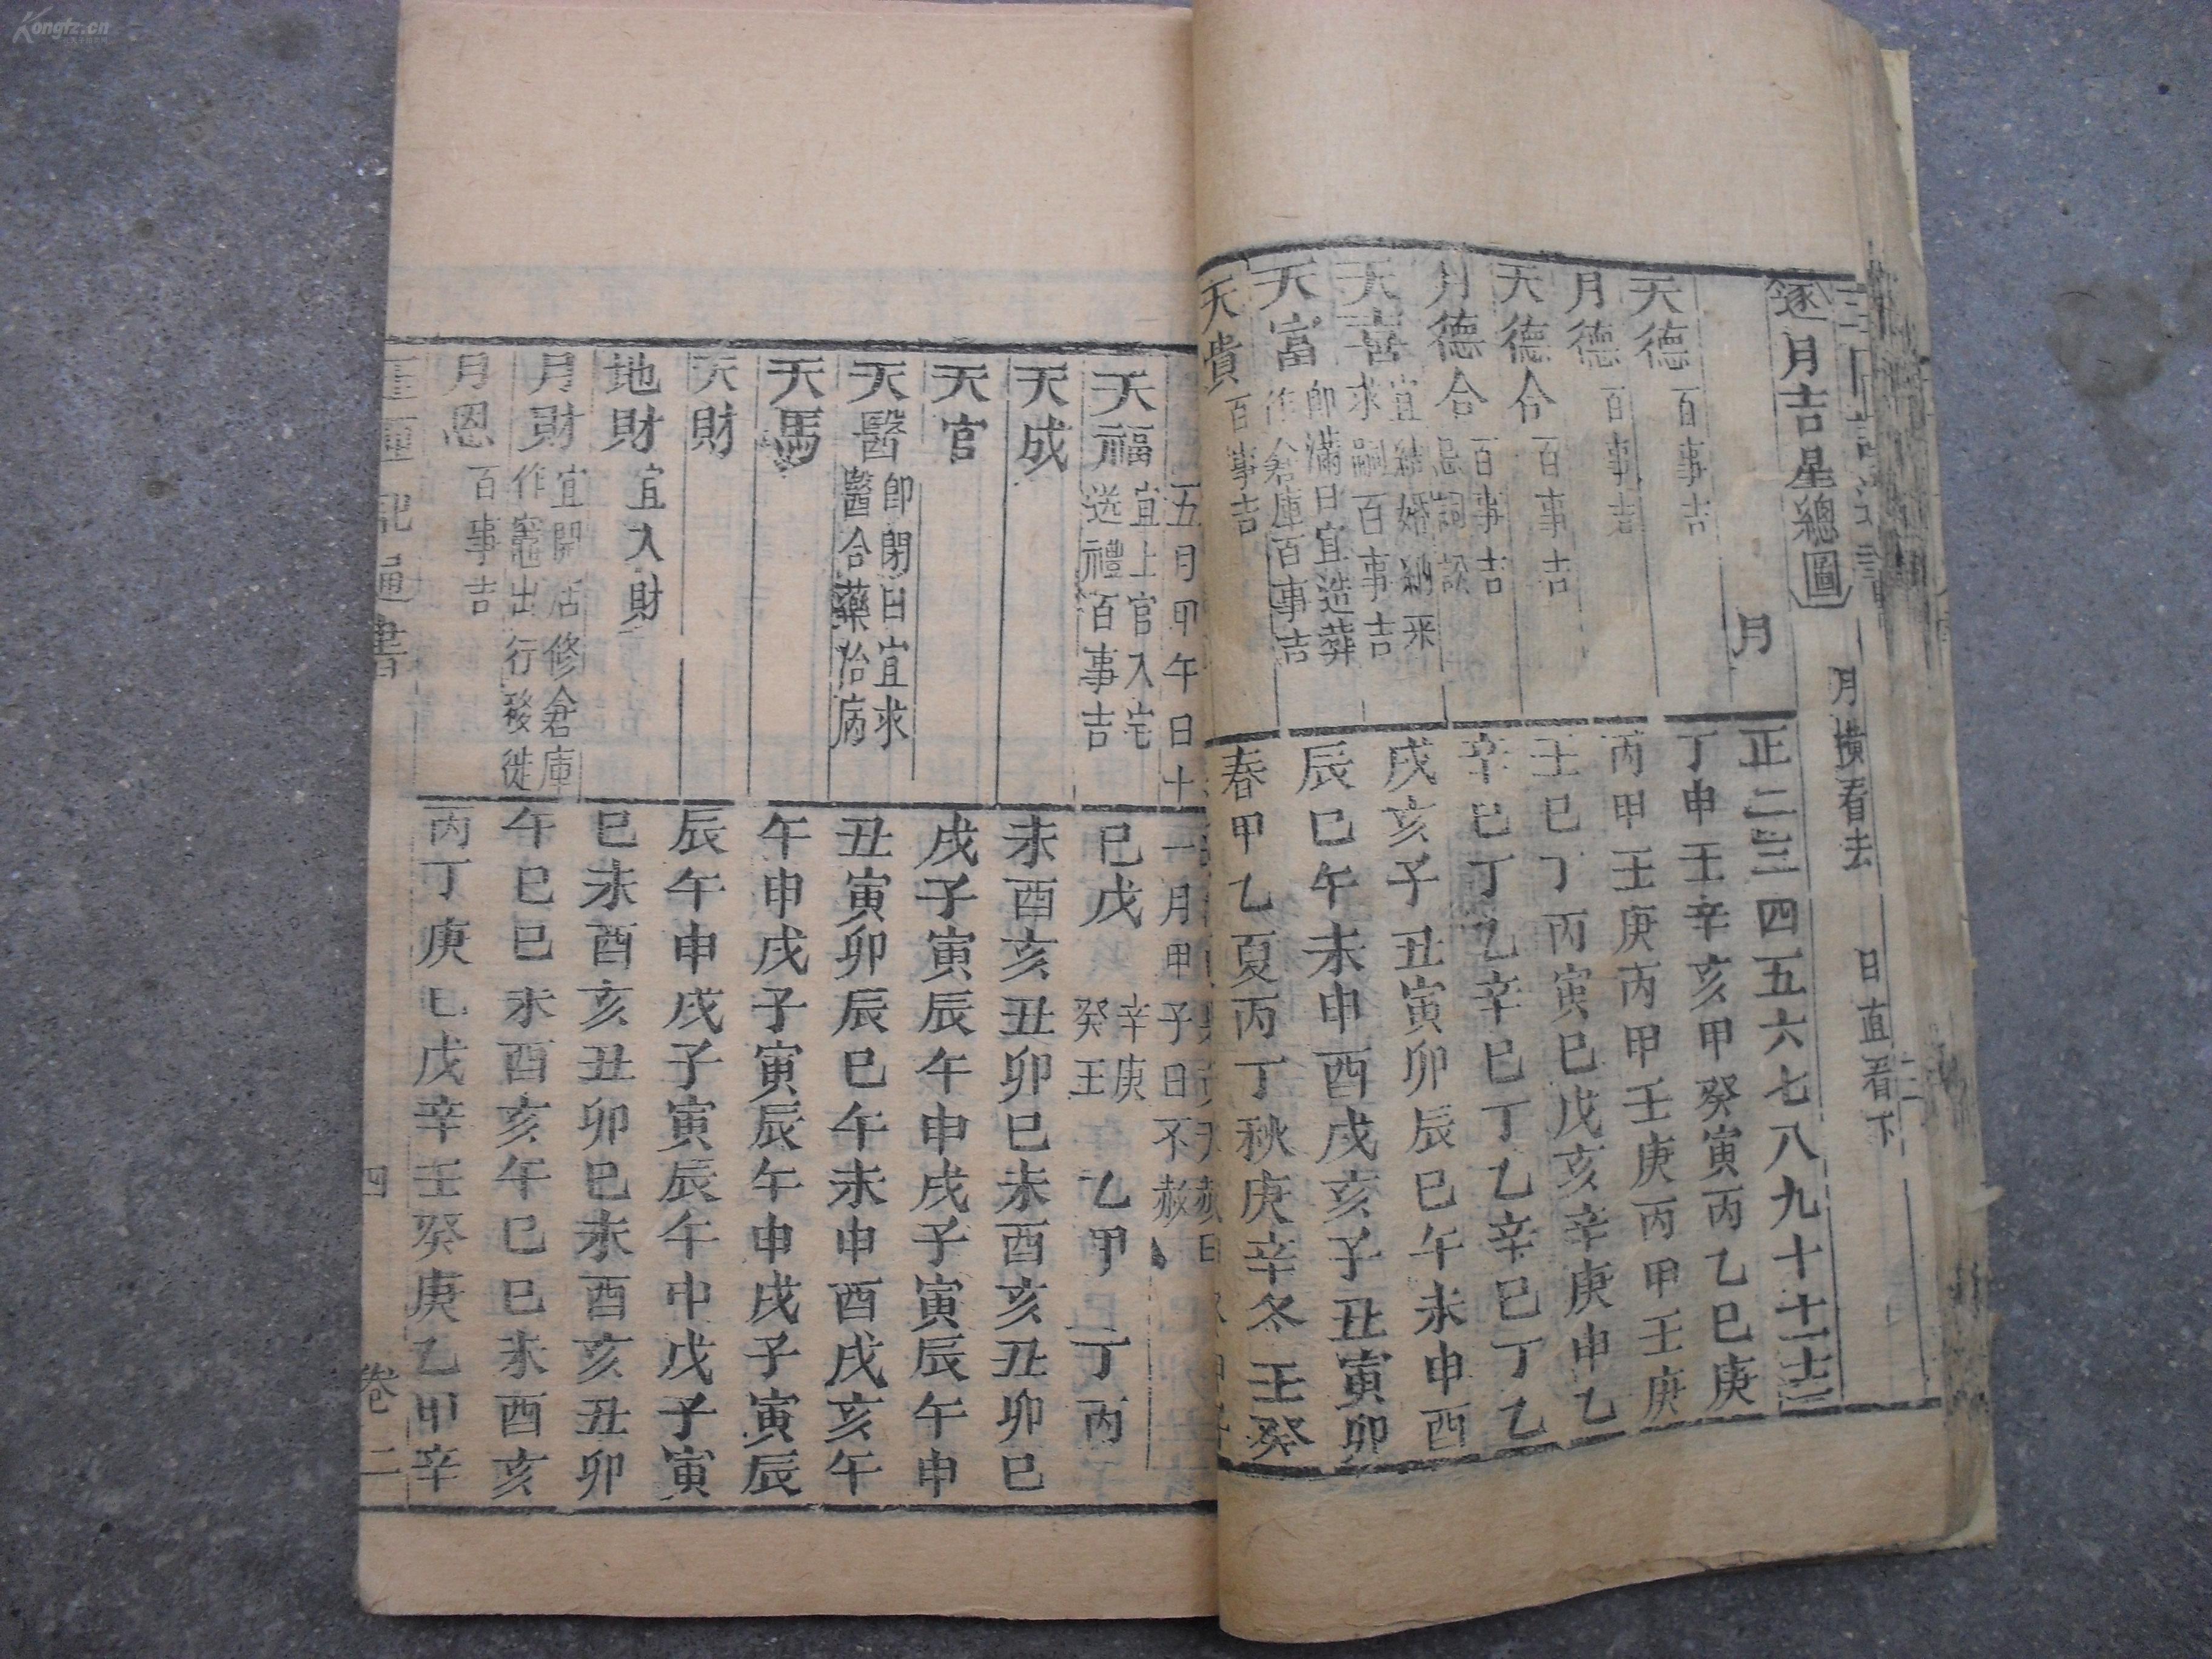 Kongfz.cn
逐月吉星總圖 月橫看去 日直看下
月 正二三四五六七八九十十一十二
天德 百事吉 丁申壬辛亥甲癸寅丙乙巳庚
月德 百事吉 丙甲壬庚丙甲壬庚丙甲壬庚
天德合 百事吉 壬巳丁丙寅巳戊亥辛庚申乙
月德合 百事吉 忌詞訟 辛巳丁乙辛巳丁乙辛巳丁乙
天喜 宜結婚納采 求嗣百事吉 戌亥子丑寅卯辰巳午未申酉
天富 即滿日宜造葬 作倉庫百事吉 辰巳午未申酉戌亥子丑寅卯
天貴 百事吉 春甲乙夏丙丁秋庚辛冬壬癸
五月甲午日十一月甲子日不赦
天福 宜上官入宅 送禮百事吉 巳戊 辛庚 癸壬 乙甲 丁丙
天成 未酉亥丑卯巳未酉亥丑卯巳
天官 戌子寅辰午申戌子寅辰午申
天醫 即閉日宜求 醫合藥治病 丑寅卯辰巳午未申酉戌亥午
天馬 午申戌子寅辰午申戌子寅辰
天財 辰午申戌子寅辰午申戌子寅
地財 宜入財 巳未酉亥丑卯巳未酉亥丑卯
月財 宜開店修倉庫 作竈出行移徙 午巳巳未酉亥午巳巳未酉亥
月恩 百事吉 丙丁庚巳戊辛壬癸庚乙甲辛
記通書 四 卷二